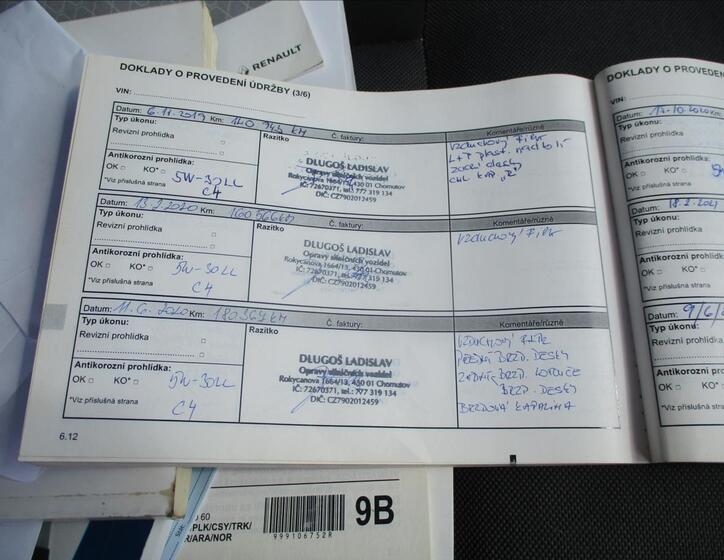 RENAULT
DOKLADY O PROVEDENÍ ÚDRŽBY (3/6)
VIN:
Datum: 6.11.2019 Km: 140 945 KM
Typ úkonu:
Revizní prohlídka
Razítko
Č. faktury:
Komentáře/různé
Antikorozní prohlídka:
OK KO*
*Viz příslušná strana
5W-30LL
C4
DLUGOŠ LADISLAV
Opravy silničních vozidel
Rokycanova 1664/13, 430 01 Chomutov
IČ: 72670371, tel.: 777 319 134
DIČ: CZ7902012459
Vzduchový filtr
L+P plast. nad
zadní desky
Datum: 13.2.2020 Km: 160566KM
Typ úkonu:
Revizní prohlídka
Razítko
Č. faktury:
Komentáře/různé
Antikorozní prohlídka:
OK KO*
*Viz příslušná strana
5W-30LL
C4
DLUGOŠ LADISLAV
Opravy silničních vozidel
Rokycanova 1664/13, 430 01 Chomutov
IČ: 72670371, tel.: 777 319 134
DIČ: CZ7902012459
Vzduchový filtr
Datum: 11.6.2020 Km: 180569 KM
Typ úkonu:
Revizní prohlídka
Razítko
Č. faktury:
Komentáře/různé
Antikorozní prohlídka:
OK KO*
*Viz příslušná strana
5W-30LL
C4
DLUGOŠ LADISLAV
Opravy silničních vozidel
Rokycanova 1664/13, 430 01 Chomutov
IČ: 72670371, tel.: 777 319 134
DIČ: CZ7902012459
VZDUCHOVÝ FILTR
PŘEDNÍ BRZD. DESKY
ZADNÍ BRZD. KOTOUČE
BRZD. DESKY
BRZDOVÁ KAPALINA
6.12
DOKLADY O PROVEDEN
VIN:
Datum: 14.10.2020
Typ úkonu:
Revizní prohlídka
Antikorozní pro
OK KO*
*Viz příslušná s
Datum: 18.2.2021
Typ úkonu:
Revizní prohlídka
Antikorozní
OK KO*
*Viz příslušná
Datum: 9/6/
Typ úkonu:
Revizní prohlídka
Antikorozní
OK KO*
*Viz příslušná
60
PLK/CSY/TRK/
R/ARA/NOR
999106752R
9B